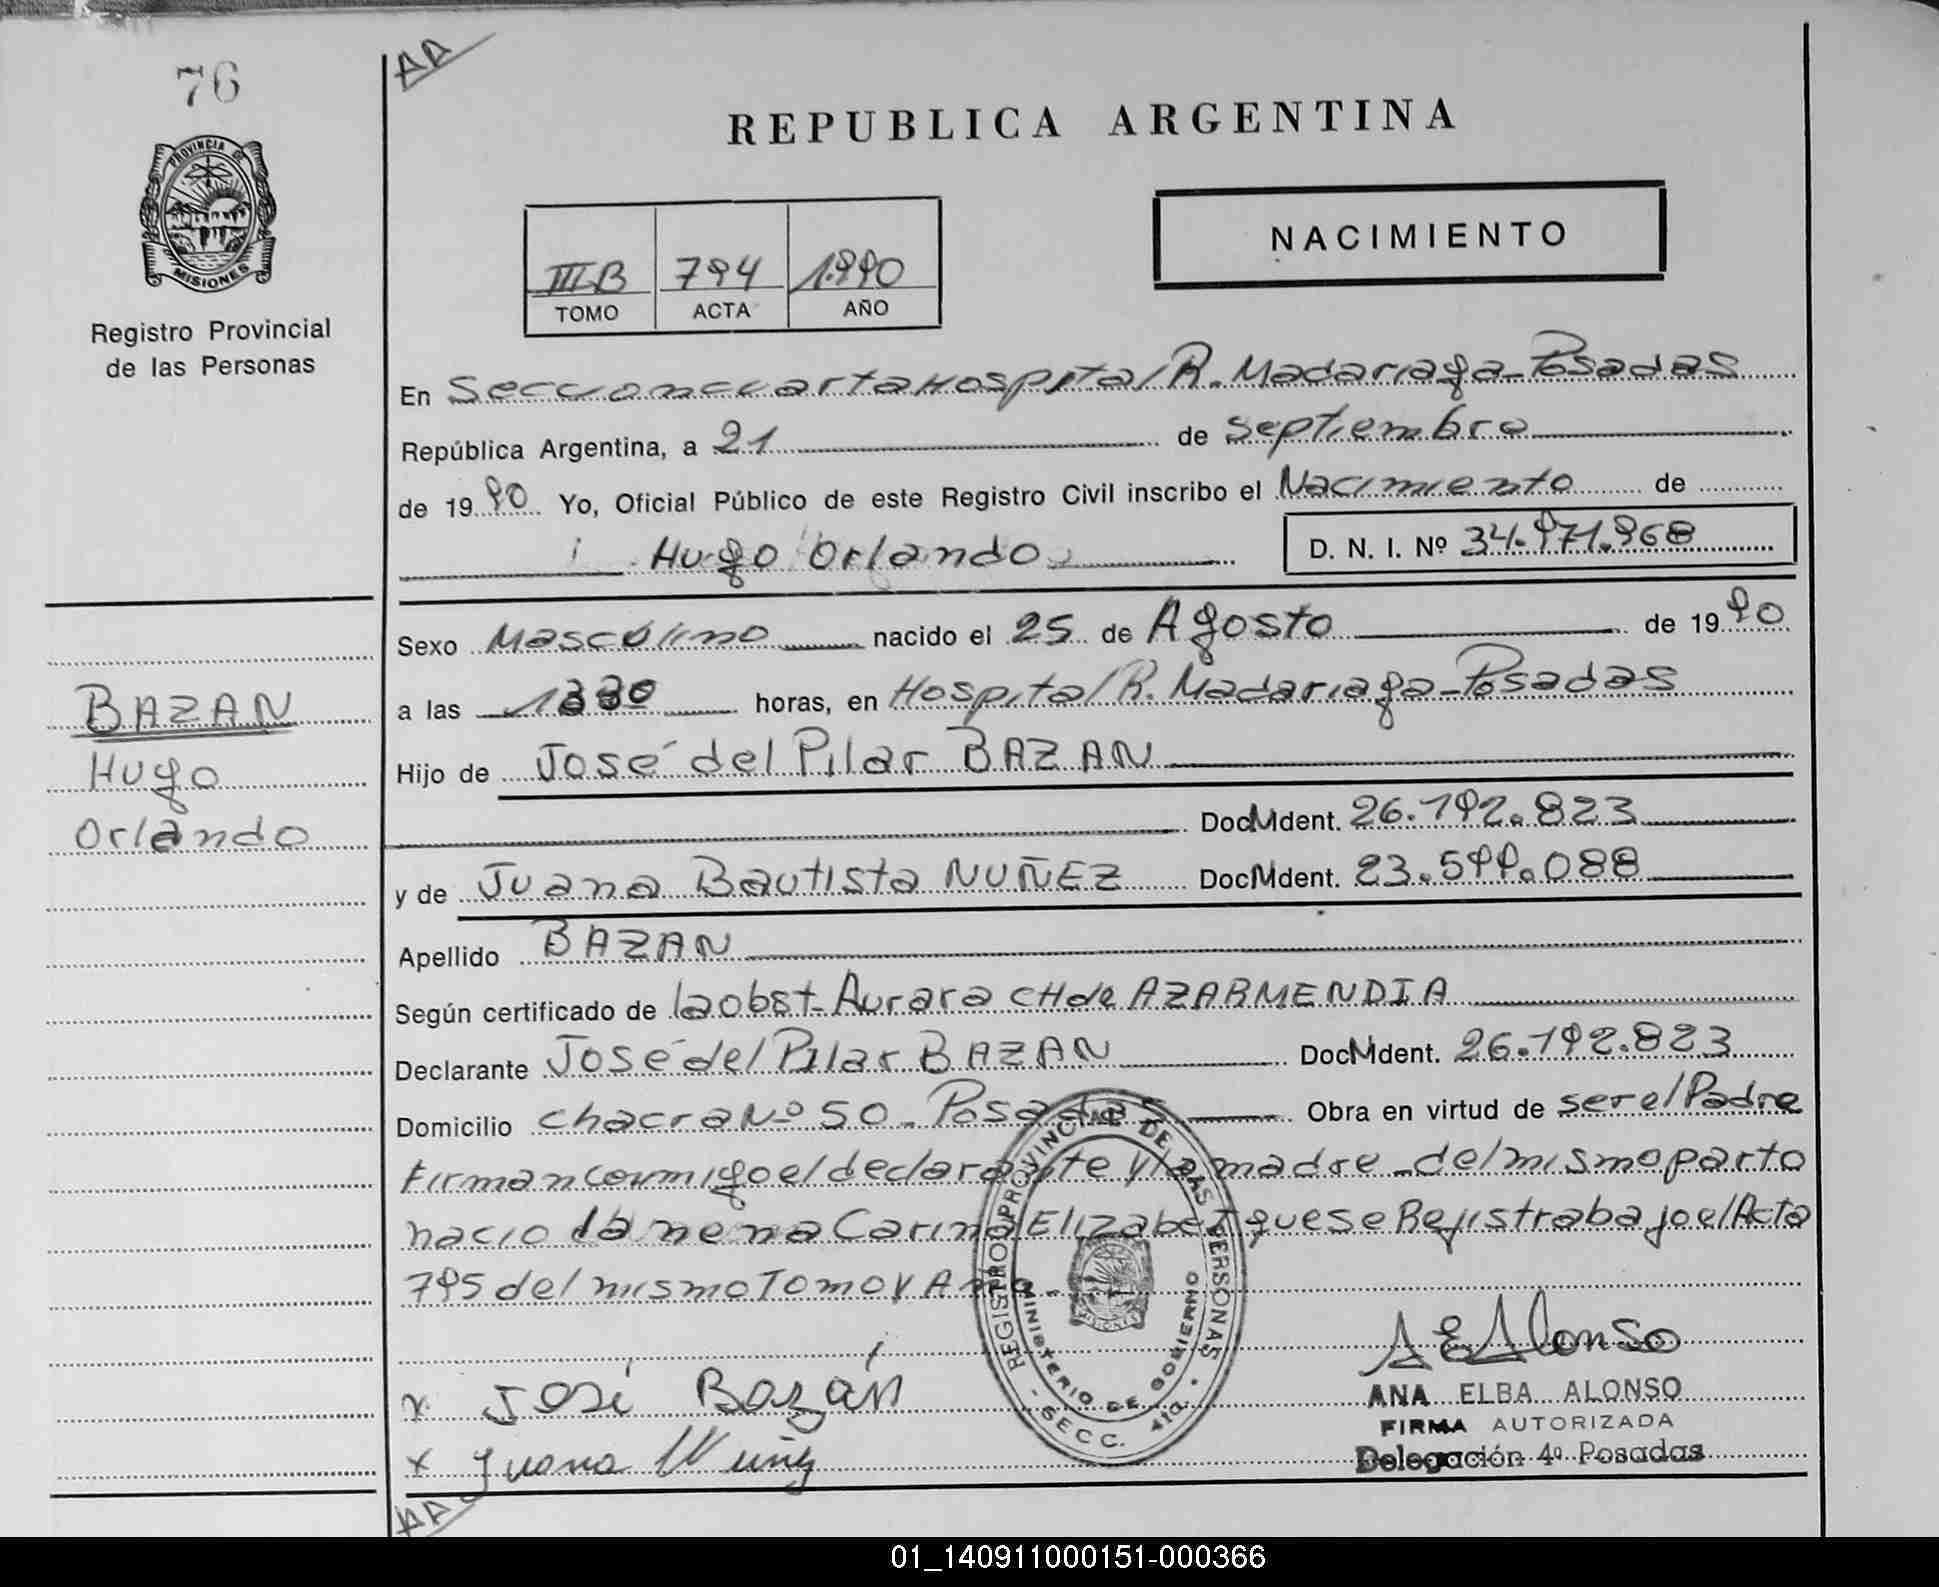 76
AA
REPUBLICA ARGENTINA
PROVINCIA DE MISIONES
Registro Provincial
de las Personas
III B 794 1.990
TOMO ACTA AÑO
NACIMIENTO
En Seccion cuarta Hospital R. Madariaga - Posadas
República Argentina, a 21 de septiembre
de 1990 Yo, Oficial Público de este Registro Civil inscribo el Nacimiento de
Hugo Orlando D. N. I. Nº 34.971.968
Sexo Masculino nacido el 25 de Agosto de 1990
a las horas, en Hospital R. Madariaga - Posadas
BAZAN
Hugo
Orlando
Hijo de José del Pilar BAZAN
Doc M Ident. 26.192.823
y de Juana Bautista NUÑEZ Doc M Ident. 23.599.088
Apellido BAZAN
Según certificado de la obst. Aurara CH de AZARMENDIA
Declarante José del Pilar BAZAN Doc M Ident. 26.192.823
Domicilio chacra Nº 50 - Posadas Obra en virtud de ser el Padre
firman conmigo el declarante y la madre - del mismo parto
nacio la nena Carina Elizabet que se Rejistra bajo el Acta
795 del mismo Tomo y Año.
REGISTRO PROVINCIAL DE LAS PERSONAS
MINISTERIO DE GOBIERNO
SECC. 4ta.
A E Alonso
x José Bazán
ANA ELBA ALONSO
FIRMA AUTORIZADA
x Juana Nuñez
Delegación 4ª Posadas
AA
01_140911000151-000366